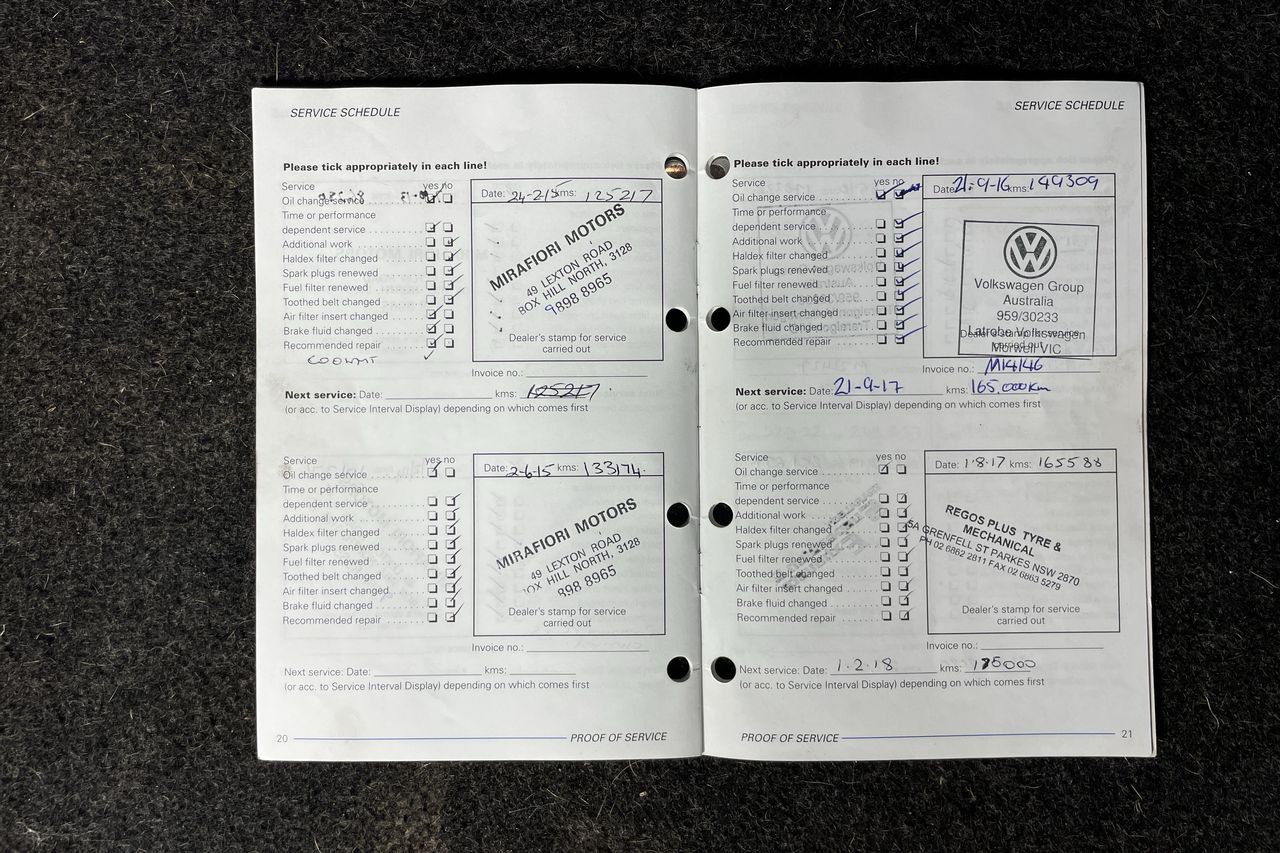 SERVICE SCHEDULE
Please tick appropriately in each line!
Service yes no
Oil change service
Time or performance
dependent service
Additional work
Haldex filter changed
Spark plugs renewed
Fuel filter renewed
Toothed belt changed
Air filter insert changed
Brake fluid changed
Recommended repair
COOLANT
Date: 24-2-15 kms: 125217
MIRAFIORI MOTORS
49 LEXTON ROAD
BOX HILL NORTH, 3128
9898 8965
Dealer's stamp for service
carried out
Invoice no.:
Next service: Date: kms: 125217
(or acc. to Service Interval Display) depending on which comes first
Service yes no
Oil change service
Time or performance
dependent service
Additional work
Haldex filter changed
Spark plugs renewed
Fuel filter renewed
Toothed belt changed
Air filter insert changed
Brake fluid changed
Recommended repair
Date: 2-6-15 kms: 133174.
MIRAFIORI MOTORS
49 LEXTON ROAD
OX HILL NORTH, 3128
898 8965
Dealer's stamp for service
carried out
Invoice no.:
Next service: Date: kms:
(or acc. to Service Interval Display) depending on which comes first
20 PROOF OF SERVICE
SERVICE SCHEDULE
Please tick appropriately in each line!
Service yes no
Oil change service
Time or performance
dependent service
Additional work
Haldex filter changed
Spark plugs renewed
Fuel filter renewed
Toothed belt changed
Air filter insert changed
Brake fluid changed
Recommended repair
Date: 21-9-16 kms: 149309
Volkswagen Group
Australia
959/30233
Latrobe Volkswagen
Morwell VIC
Dealer's stamp for service
carried out
Invoice no.: M14146
Next service: Date: 21-9-17 kms: 165.000km
(or acc. to Service Interval Display) depending on which comes first
Service yes no
Oil change service
Time or performance
dependent service
Additional work
Haldex filter changed
Spark plugs renewed
Fuel filter renewed
Toothed belt changed
Air filter insert changed
Brake fluid changed
Recommended repair
Date: 1·8·17 kms: 165588
REGOS PLUS TYRE &
MECHANICAL
5A GRENFELL ST PARKES NSW 2870
PH 02 6862 2811 FAX 02 6863 5279
Dealer's stamp for service
carried out
Invoice no.:
Next service: Date: 1·2·18 kms: 175000
(or acc. to Service Interval Display) depending on which comes first
PROOF OF SERVICE 21